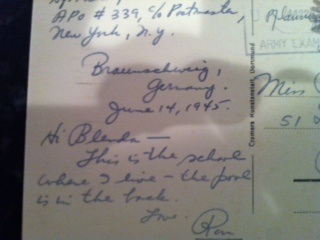 APO # 339, c/o Postmaster,
New York, N.Y.
Braunschweig,
Germany.
June 14, 1945.
Hi Blenda —
This is the school
where I live — the pool
is in the back.
Love.
Ron
ARMY EXAM
Miss
51